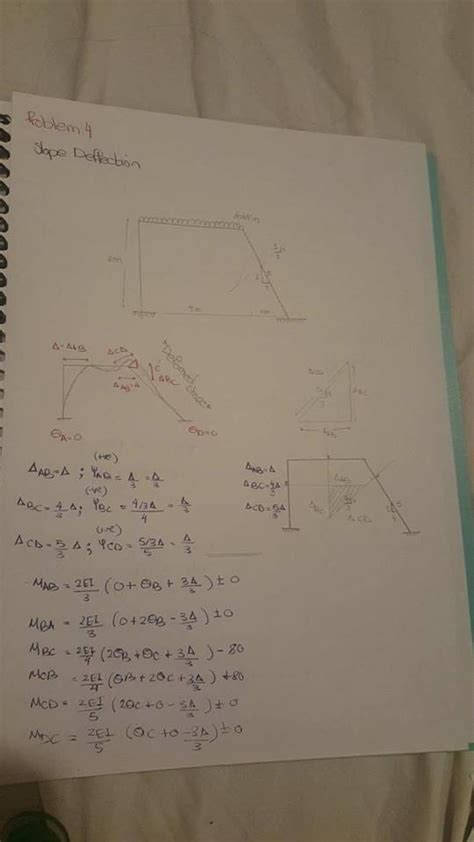 Problem 4
Slope Deflection
3m
4m
Δ=ΔAB
ΔCD
ΔBC
ΔAB=Δ
θA=0
θD=0
ΔCD
ΔBC
ΔAB
ΔAB=Δ ; ΨAB=Δ/3=Δ/3
(+ve)
ΔBC=4/3Δ ; ΨBC=4/3Δ/4=Δ/3
(-ve)
ΔCD=5/3 Δ ; ΨCD=5/3Δ/5=Δ/3
(+ve)
ΔAB=Δ
ΔBC=4/3Δ
ΔCD=5/3Δ
ΔAB
ΔBC
ΔCD
MAB=2EI/3 (0+θB+3Δ/3)±0
MBA=2EI/3 (0+2θB-3Δ/3)±0
MBC=2EI/4 (2θB+θC+3Δ/3)-80
MCB=2EI/4 (θB+2θC+3Δ/3)+80
MCD=2EI/5 (2θC+0-3Δ/3)±0
MDC=2EI/5 (θC+0-3Δ/3)±0